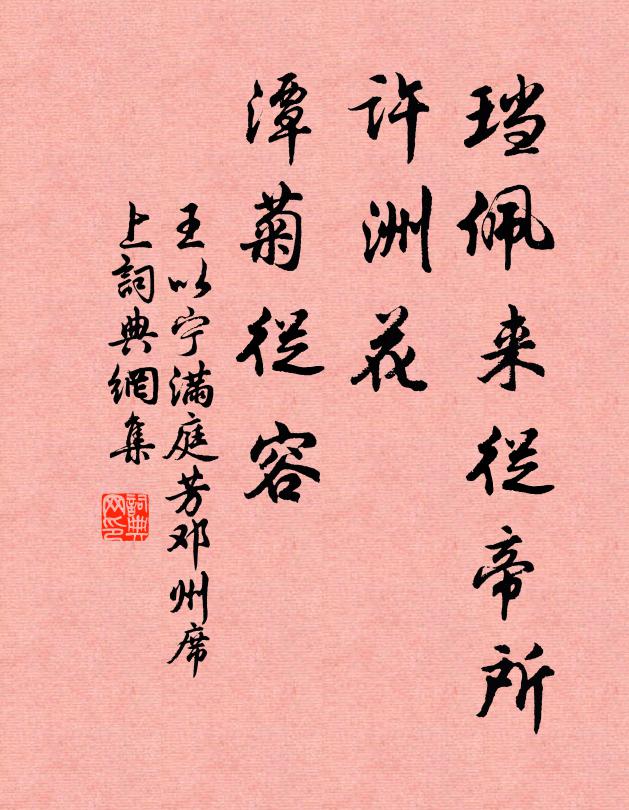 珰佩来從帝所
許洲花
潭菊從容
王以宁满庭芳邓州席
上詞典網集
詞典网印